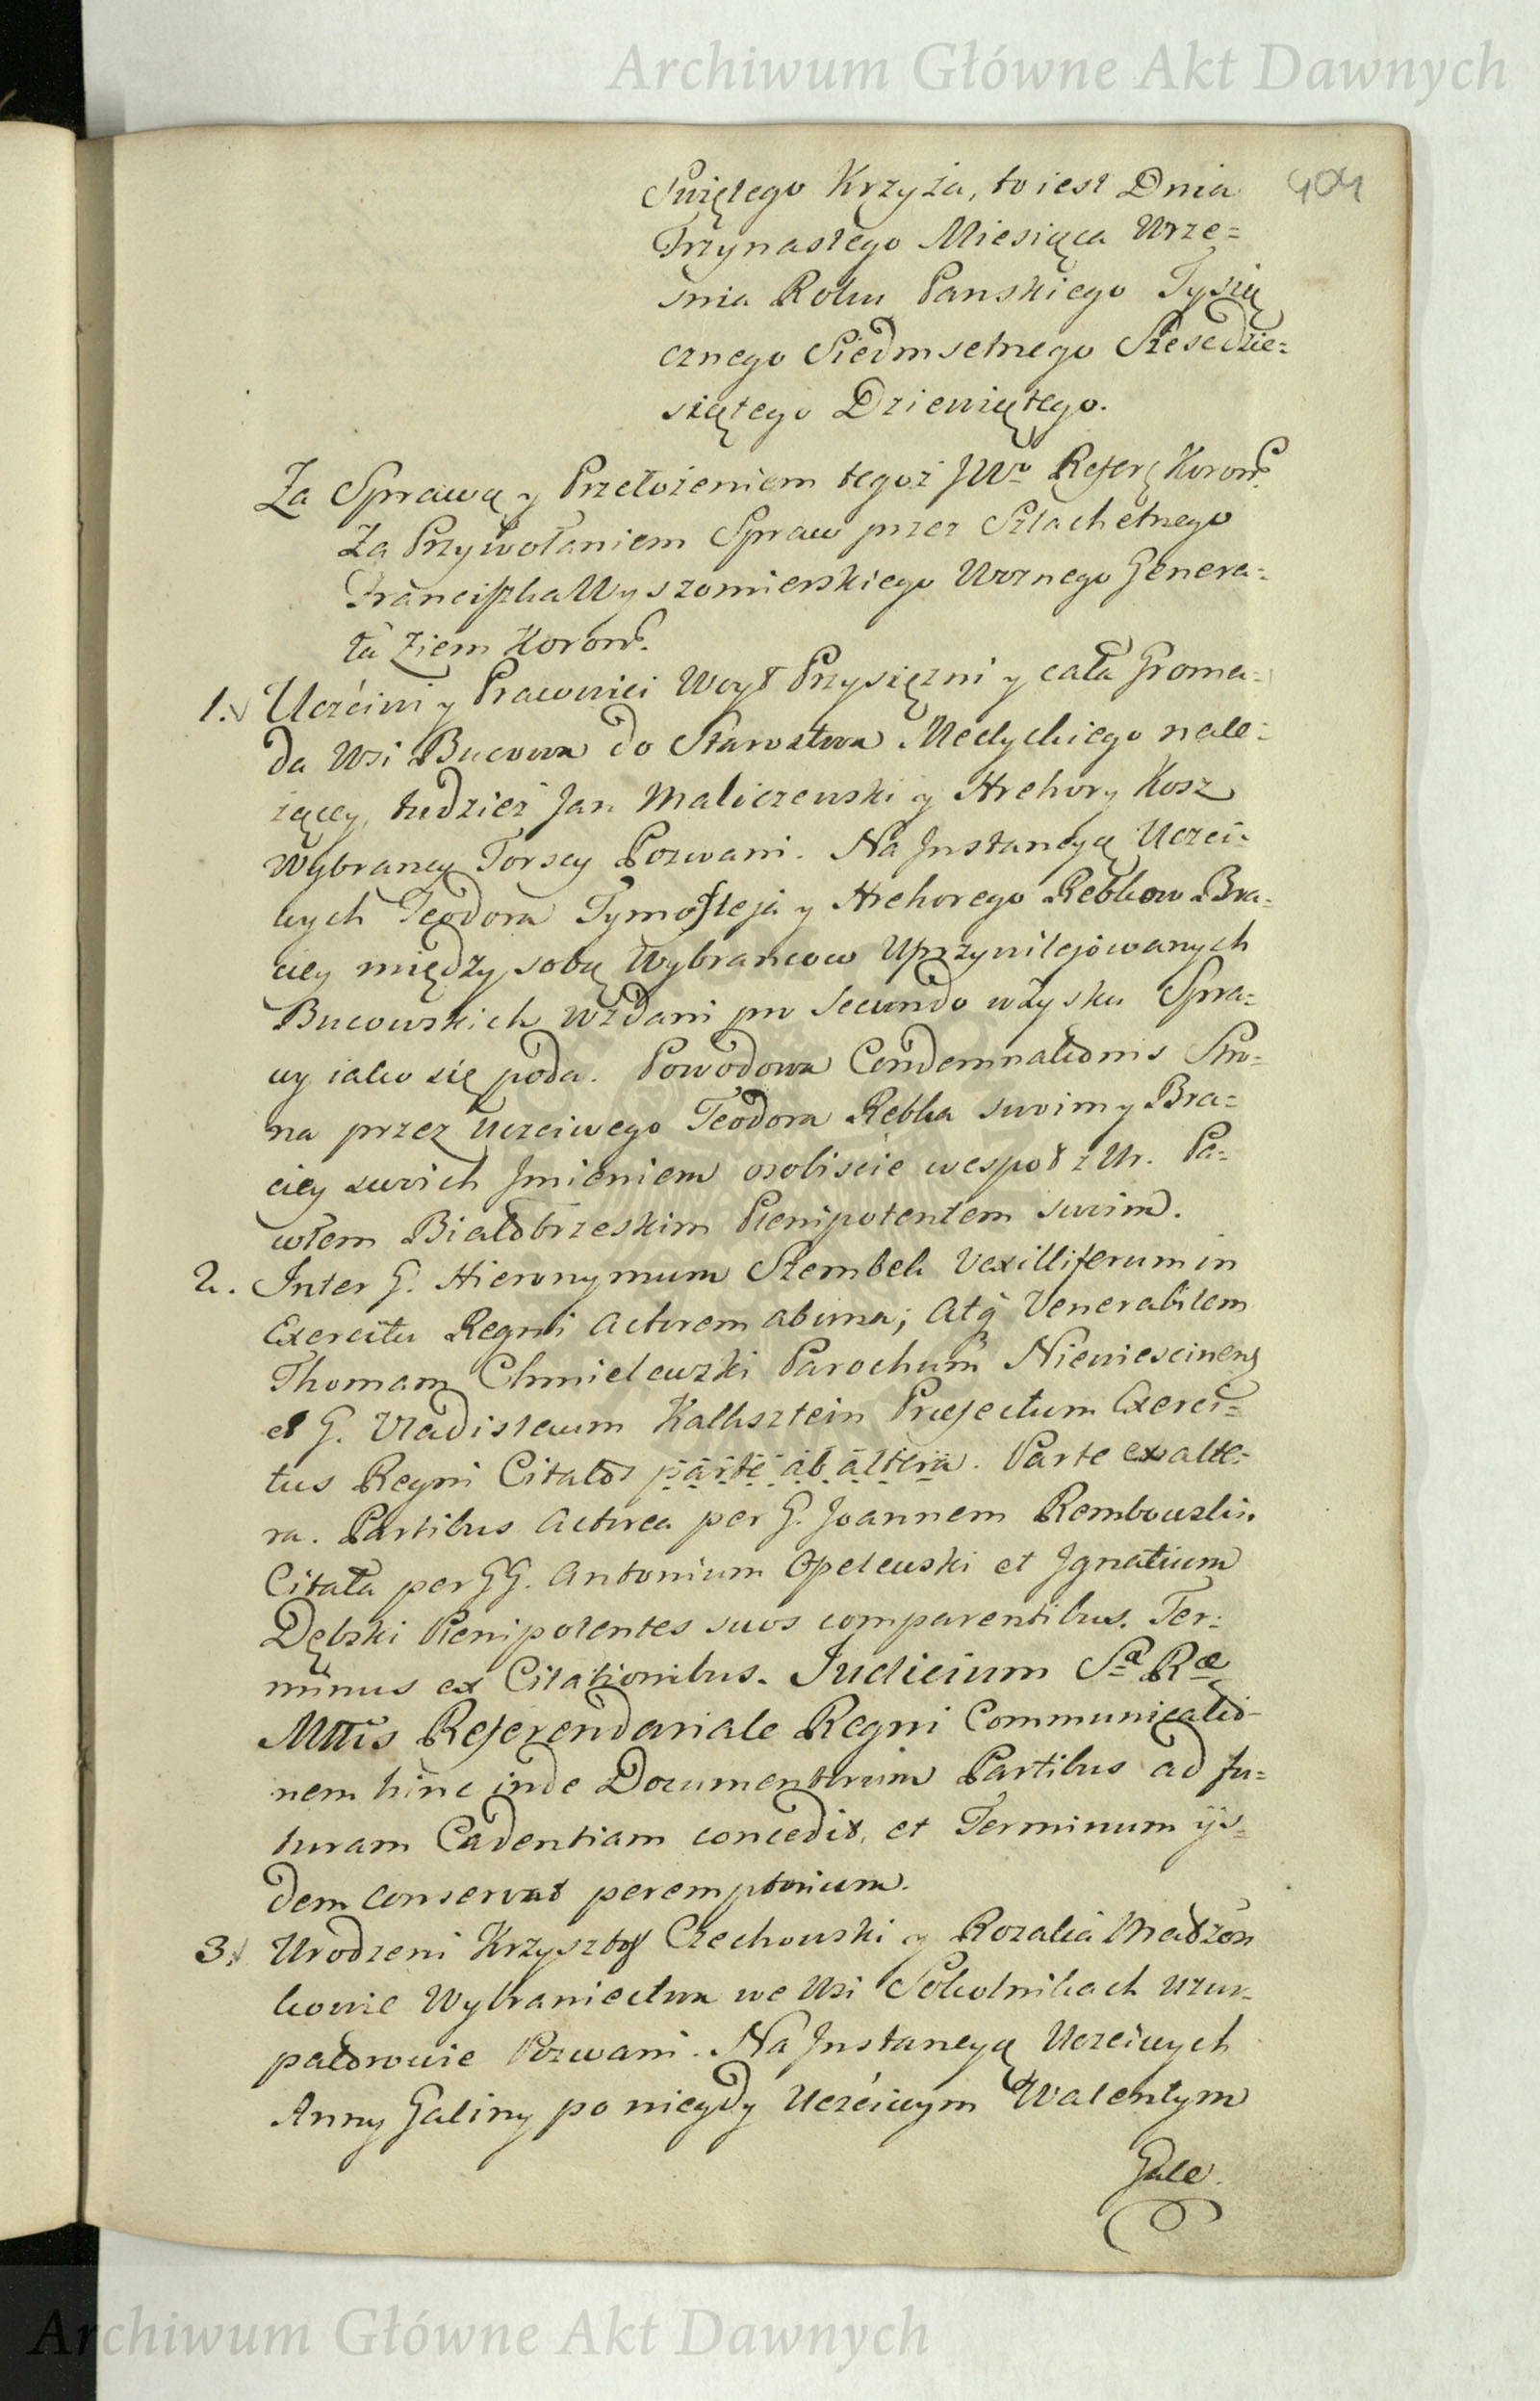 Archiwum Główne Akt Dawnych
404
Swiętego Krzyża, to iest Dnia
Trzynastego Miesiąca Wrze=
snia Roku Panskiego Tysią
cznego Siedmsetnego Szescdzie=
siątego Dziewiątego.
Za Sprawą y Przełożeniem tegoż JWo Referę Koron.
Za Przywołaniem Spraw przez Szlachetnego
Franciszka Wyszomierskiego Woznego Genera=
ła Ziem Koron.
1. Uczciwi y Pracowici Woyt Przysięzni y cała Groma=
da Wsi Bucowa do Starostwa Medyckiego nale=
żący, tudzież Jan Maliczewski y Hrehory Kosz
Wybrancy Torscy Pozwani. Na Jnstancyą Uczci=
wych Teodora Tymofteja y Hrehorego Rebkow Bra=
ciey między sobą Wybrancow Uprzywilejowanych
Bucowskich wzdani pro Secundo w Zysku Spra=
wy iako się poda. Powodowa Condemnationis Stro=
na przez Uczciwego Teodora Rebka swoim y Bra=
ciey swoich Jmieniem osobiscie wespoł z Ur. Pa=
włem Białobrzeskim Plenipotentem swoim.
2. Inter G. Hieronymum Szembek Vexilliferum in
Exercitu Regni Actorem ab una; Atq Venerabilem
Thomam Chmielewski Parochum Niewiescinens
et G. Vladislaum Kalksztein Præfectum Exerci=
tus Regni Citatos parte ab altera. Parte ex alte=
ra. Partibus Actorea per G. Joannem Rembowski.
Citata per GG. Antonium Opelewski et Jgnatium
Dębski Plenipotentes suos comparentibus. Ter=
minus ex Citationibus. Iudicium Sæ Ræ
Mttis Referendariale Regni Communicatio=
nem hinc inde Documentorum Partibus ad fu=
turam Cadentiam concedit, et Terminum ijs=
dem conservat peremptorium.
3. Urodzeni Krzysztof Czechowski y Rozalia Małzon
kowie Wybraniectwa we Wsi Sokolnikach uzur=
patorowie Pozwani. Na Jnstancyą Uczciwych
Anny Galiny po niegdy Uczciwym Walentym
Gale
Archiwum Główne Akt Dawnych